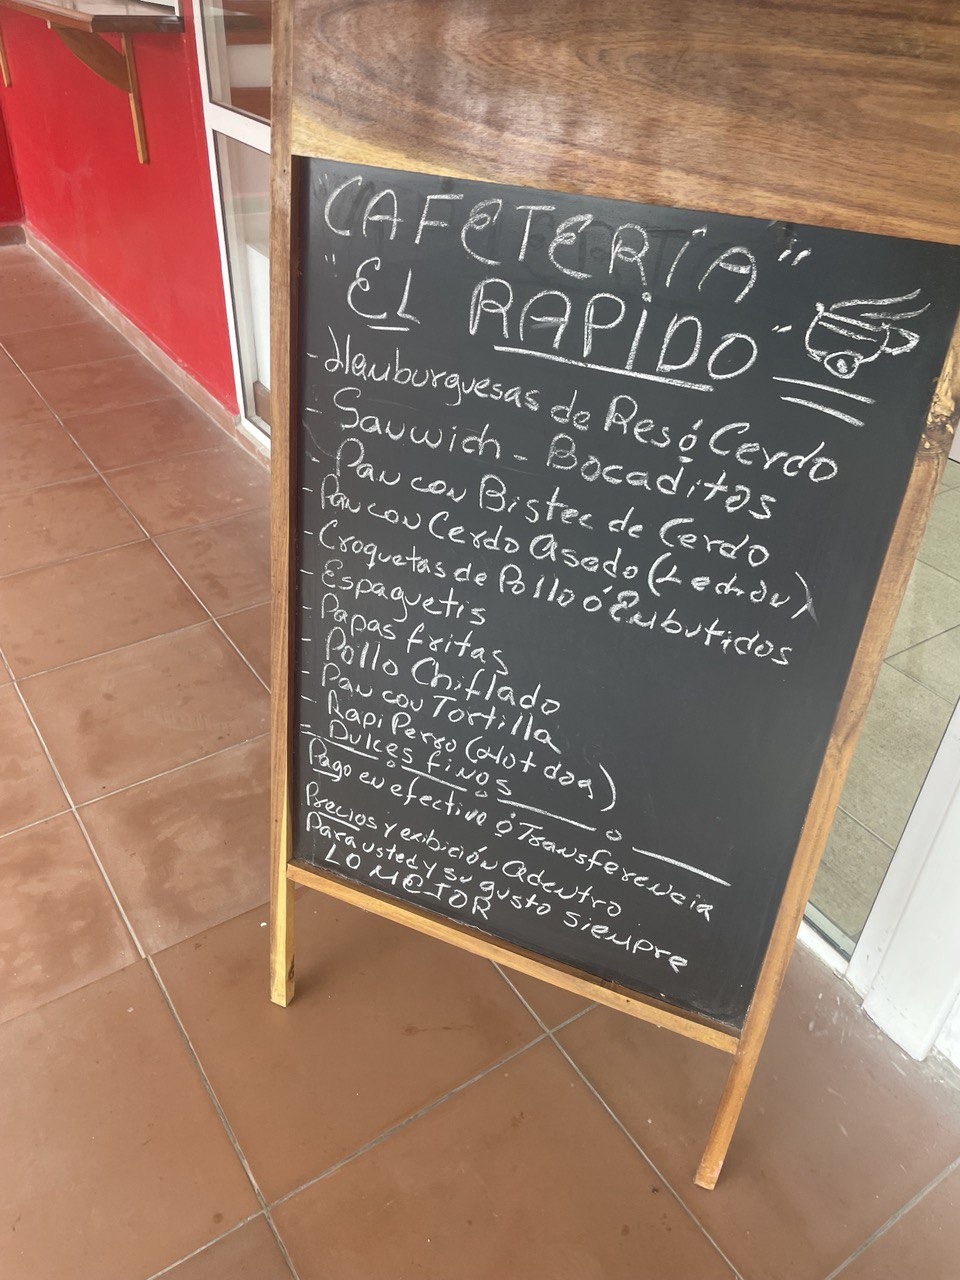 "CAFETERÍA"
"EL RAPIDO"
- Hamburguesas de Res ó Cerdo
- Sanwich - Bocaditos
- Pan con Bistec de Cerdo
- Pan con Cerdo Asado (Lechón)
- Croquetas de Pollo ó Enbutidos
- Espaguetis
- Papas fritas
- Pollo Chiflado
- Pan con Tortilla
- Rapi Perro (Hot dog)
- Dulces finos
Pago en efectivo ó Transferencia
Precios y exibición Adentro
Para usted y su gusto siempre
LO MEJOR